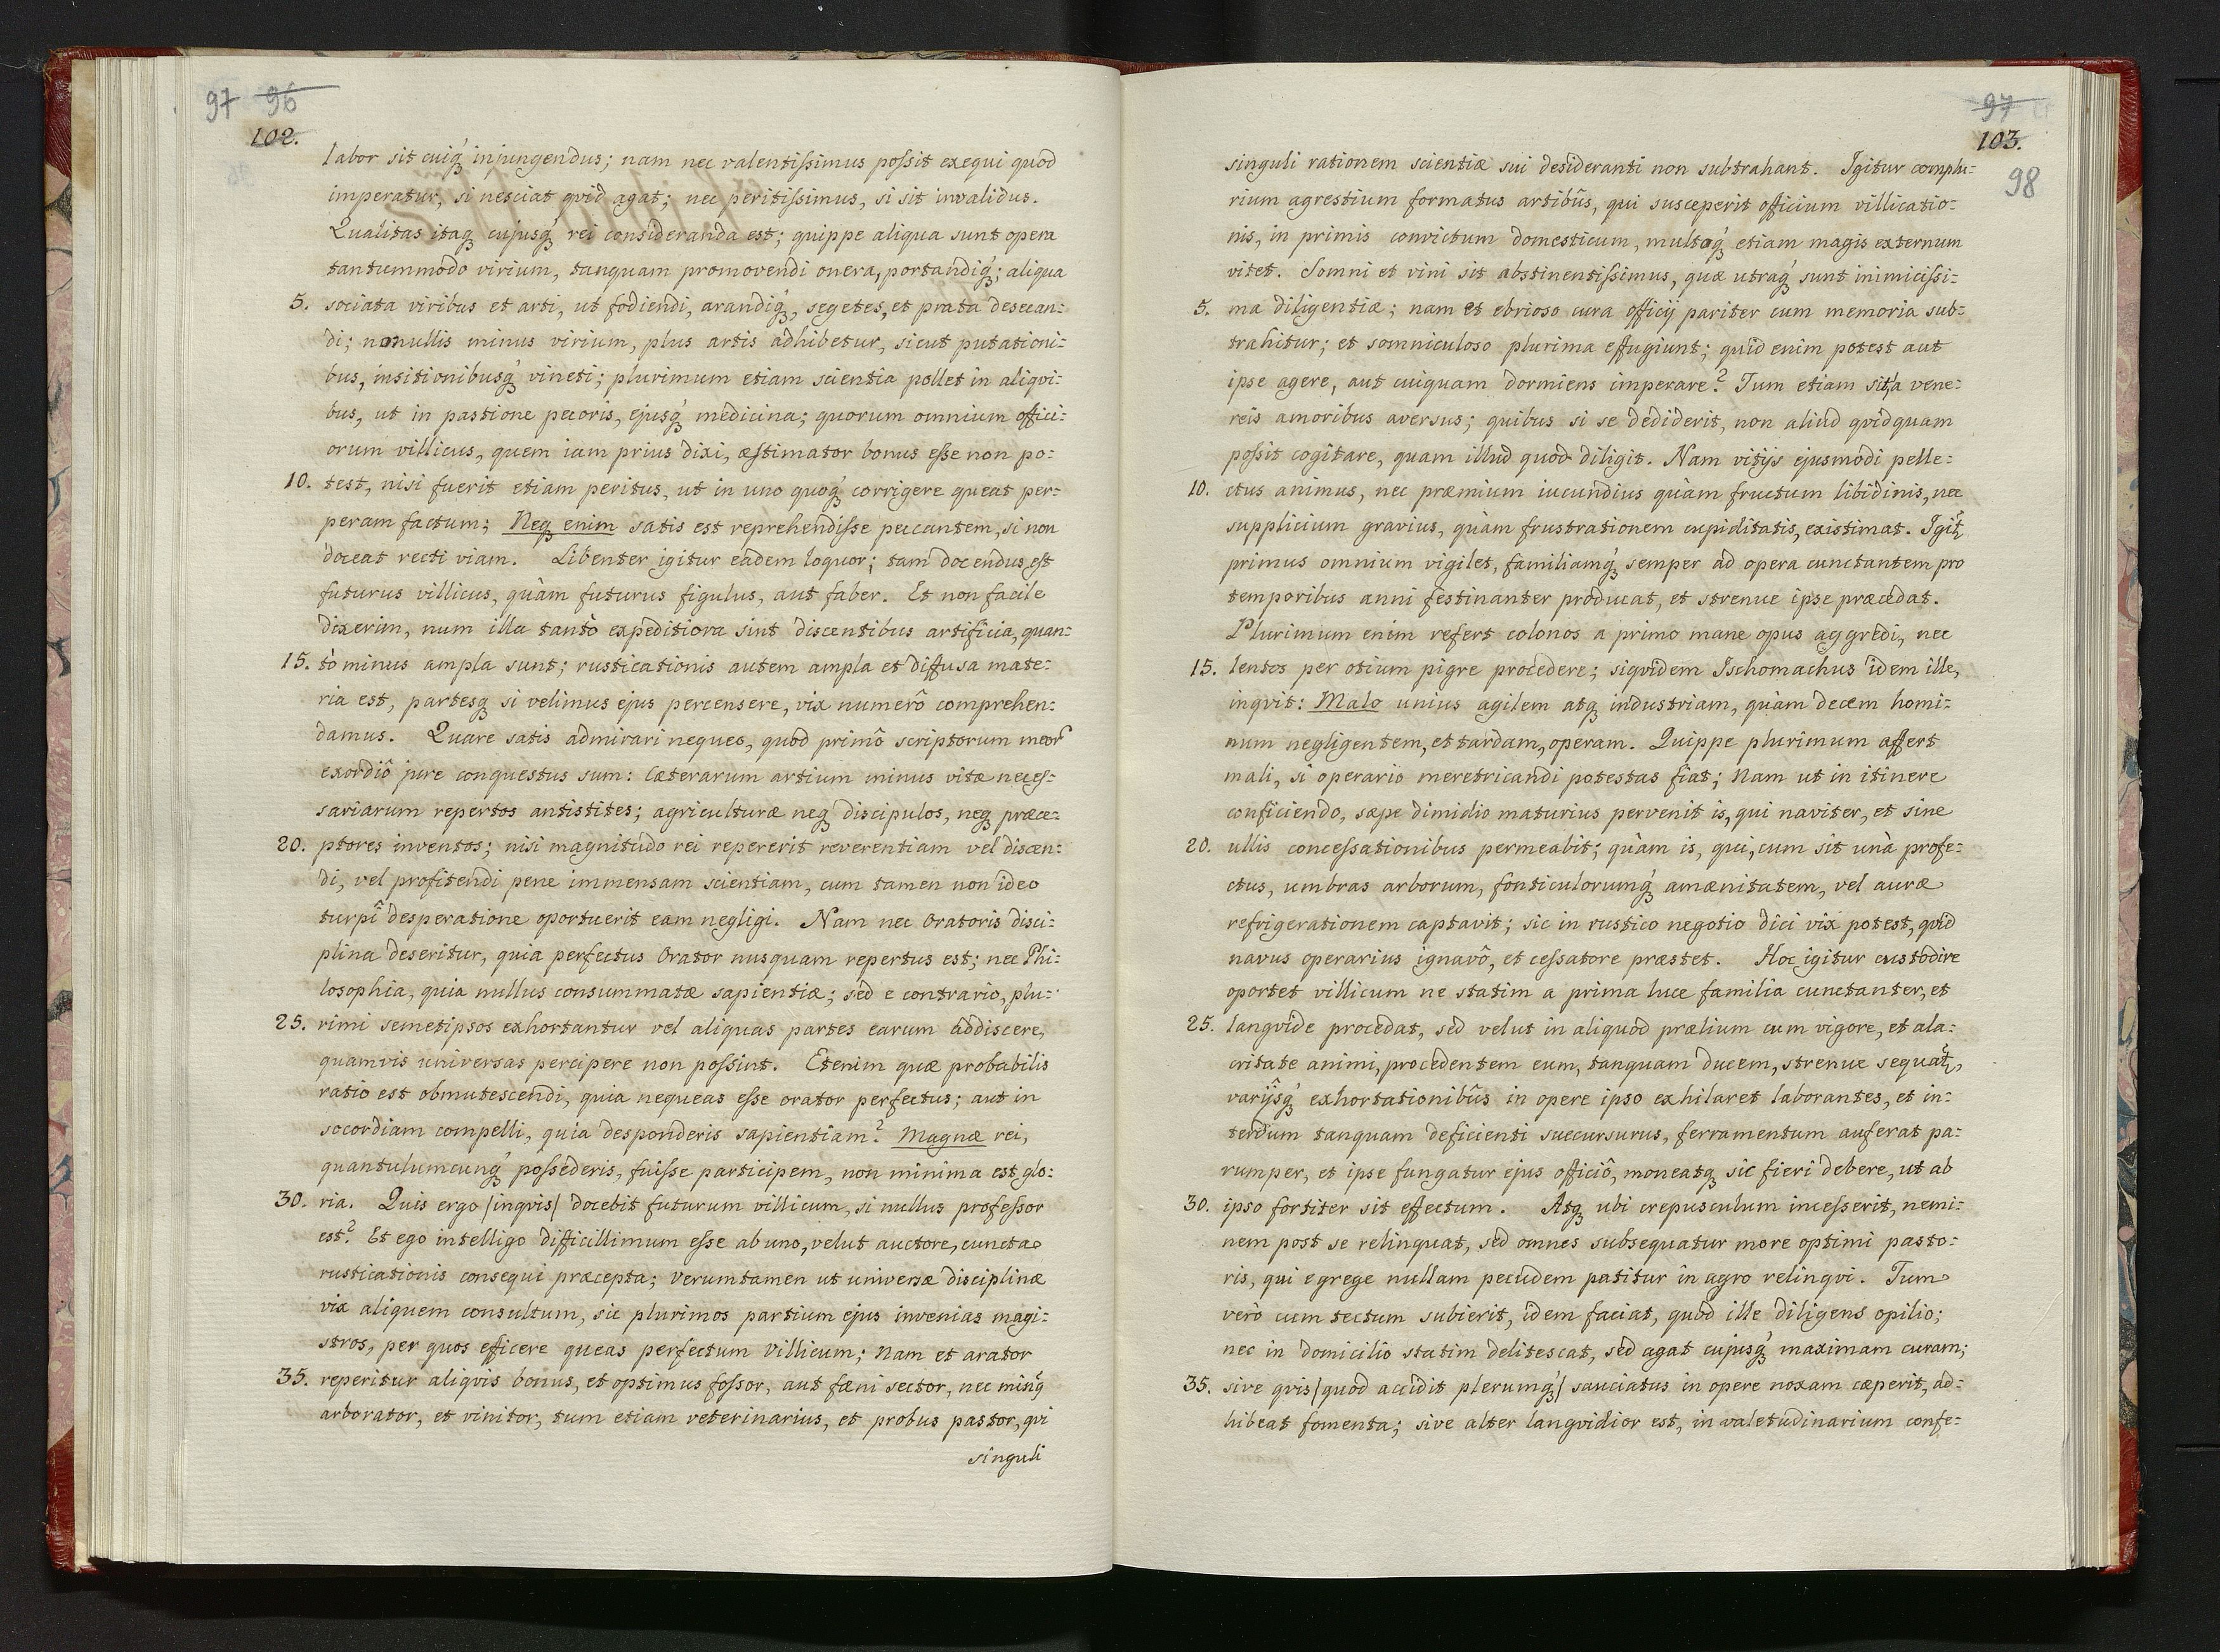 97 96
102.
labor sit cuiq́ꝫ injungendus; nam nec valentiſsimus poſsit exequi quod
imperatur, si nesciat qvid agat; nec peritiſsimus, si sit invalidus.
Qualitas itaqꝫ cujusq́ꝫ rei consideranda est; quippe aliqua sunt opera
tantummodo virium, tanquam promovendi onera, portandiq́ꝫ; aliqua
5. sociata viribus et arti, ut fodiendi, arandiq́ꝫ, segetes, et prata desecan:
di; nonnullis minus virium, plus artis adhibetur, sicut putationi:
bus, insitionibusq́ꝫ vineti; plurimum etiam scientia pollet in aliqvi:
bus, ut in pastione pecoris, ejusq́ꝫ medicina; quorum omnium offici:
orum villicus, quem iam prius dixi, æstimator bonus eſse non po:
10. test, nisi fuerit etiam peritus, ut in uno quoq́ꝫ corrigere queat per:
peram factum; Neqꝫ enim satis est reprehendiſse peccantem, si non
doceat recti viam. Libenter igitur eadem loquor; tam docendus est
futurus villicus, quàm futurus figulus, aut faber. Et non facile
dixerim, num illa tantò expeditiora sint discentibus artificia, quan:
15. tò minus ampla sunt; rusticationis autem ampla et diffusa mate:
ria est, partesqꝫ si velimus ejus percensere, vix numerô comprehen:
damus. Quare satis admirari nequeo, quod primô scriptorum meor̃
exordiô jure conquestus sum: cæterarum artium minus vitæ neceſ:
sariarum repertos antistites; agriculturæ neqꝫ discipulos, neqꝫ præce:
20. ptores inventos; nisi magnitudo rei repererit reverentiam vel discen:
di, vel profitendi pene immensam scientiam, cum tamen non ideo
turpî desperatione oportuerit eam negligi. Nam nec oratoris disci:
plina deseritur, quia perfectus Orator nusquam repertus est; nec Phi:
losophia, quia nullus consummatæ sapientiæ; sed e contrario, plu:
25. rimi semetipsos exhortantur vel aliquas partes earum addiscere,
quamvis universas percipere non poſsint. Etenim quæ probabilis
ratio est obmutescendi, quia nequeas eſse orator perfectus; aut in
socordiam compelli, quia desponderis sapientiam? Magnæ rei,
quantulumcunq́ꝫ poſsederis, fuiſse participem, non minima est glo:
30. ria. Quis ergo /inqvis/ docebit futurum villicum, si nullus profeſsor
est? Et ego intelligo difficillimum eſse ab uno, velut auctore, cuncta
rusticationis consequi præcepta; verumtamen ut universæ disciplinæ
vix aliquem consultum, sic plurimos partium ejus invenias magi:
stros, per quos efficere queas perfectum villicum; Nam et arator
35. reperitur aliqvis bonus, et optimus foſsor, aut fæni sector, nec minꝰ
arborator, et vinitor, tum etiam veterinarius, et probus pastor, qvi
singuli
97
103.
98
singuli rationem scientiæ sui desideranti non subtrahant. Igitur complu:
rium agrestium formatus artibûs, qui susceperit officium villicatio:
nis, in primis convictum domesticum, multoq́ꝫ etiam magis externum
vitet. Somni et vini sit abstinentiſsimus, quæ utraq́ꝫ sunt inimiciſsi:
5. ma diligentiæ; nam et ebrioso cura officij pariter cum memoria sub:
trahitur; et somniculoso plurima effugiunt; quid enim potest aut
ipse agere, aut cuiquam dormiens imperare? Tum etiam sit, a vene:
reis amoribus aversus; quibus si se dediderit, non aliud qvidquam
poſsit cogitare, quam illud quod diligit. Nam vitijs ejusmodi pelle:
10. ctus animus, nec præmium iucundius quàm fructum libidinis, nec
supplicium gravius, quàm frustrationem cupiditatis, existimat. Igit̃
primus omnium vigilet, familiamq́ꝫ semper ad opera cunctantem pro
temporibus anni festinanter producat, et strenue ipse præcedat.
Plurimum enim refert colonos a primo mane opus aggredi, nec
15. lentos per otium pigre procedere; siqvidem Ischomachus idem ille,
inqvit: Malo unius agilem atqꝫ industriam, quàm decem homi:
num negligentem, et tardam, operam. Quippe plurimum affert
mali, si operario meretricandi potestas fiat; Nam ut in itinere
conficiendo, sæpe dimidio maturius pervenit is, qui naviter, et sine
20. ullis conceſsationibus permeabit; quàm is, qui, cum sit unà profe:
ctus, umbras arborum, fonticulorumq́ꝫ amænitatem, vel auræ
refrigerationem captavit; sic in rustico negotio dici vix potest, qvid
navus operarius ignavô, et ceſsatore præstet. Hoc igitur custodire
oportet villicum ne statim a prima luce familia cunctanter, et
25. langvide procedat, sed velut in aliquod prælium cum vigore, et ala:
critate animi, procedentem eum, tanquam ducem, strenue sequat̃,
varijsq́ꝫ exhortationibûs in opere ipso exhilaret laborantes, et in:
terdum tanquam deficienti succursurus, ferramentum auferat pa:
rumper, et ipse fungatur ejus officiô, moneatqꝫ sic fieri debere, ut ab
30. ipso fortiter sit effectum. Atqꝫ ubi crepusculum inceſserit, nemi:
nem post se relinquat, sed omnes subsequatur more optimi pasto:
ris, qui e grege nullam pecudem patitur in agro relinqvi. Tum
verò cum tectum subierit, idem faciat, quod ille diligens opilio;
nec in domicilio statim delitescat, sed agat cujusq́ꝫ maximam curam;
35. sive qvis /quod accidit plerumq́ꝫ/ sauciatus in opere noxam cæperit, ad:
hibeat fomenta; sive alter langvidior est, in valetudinarium confe: